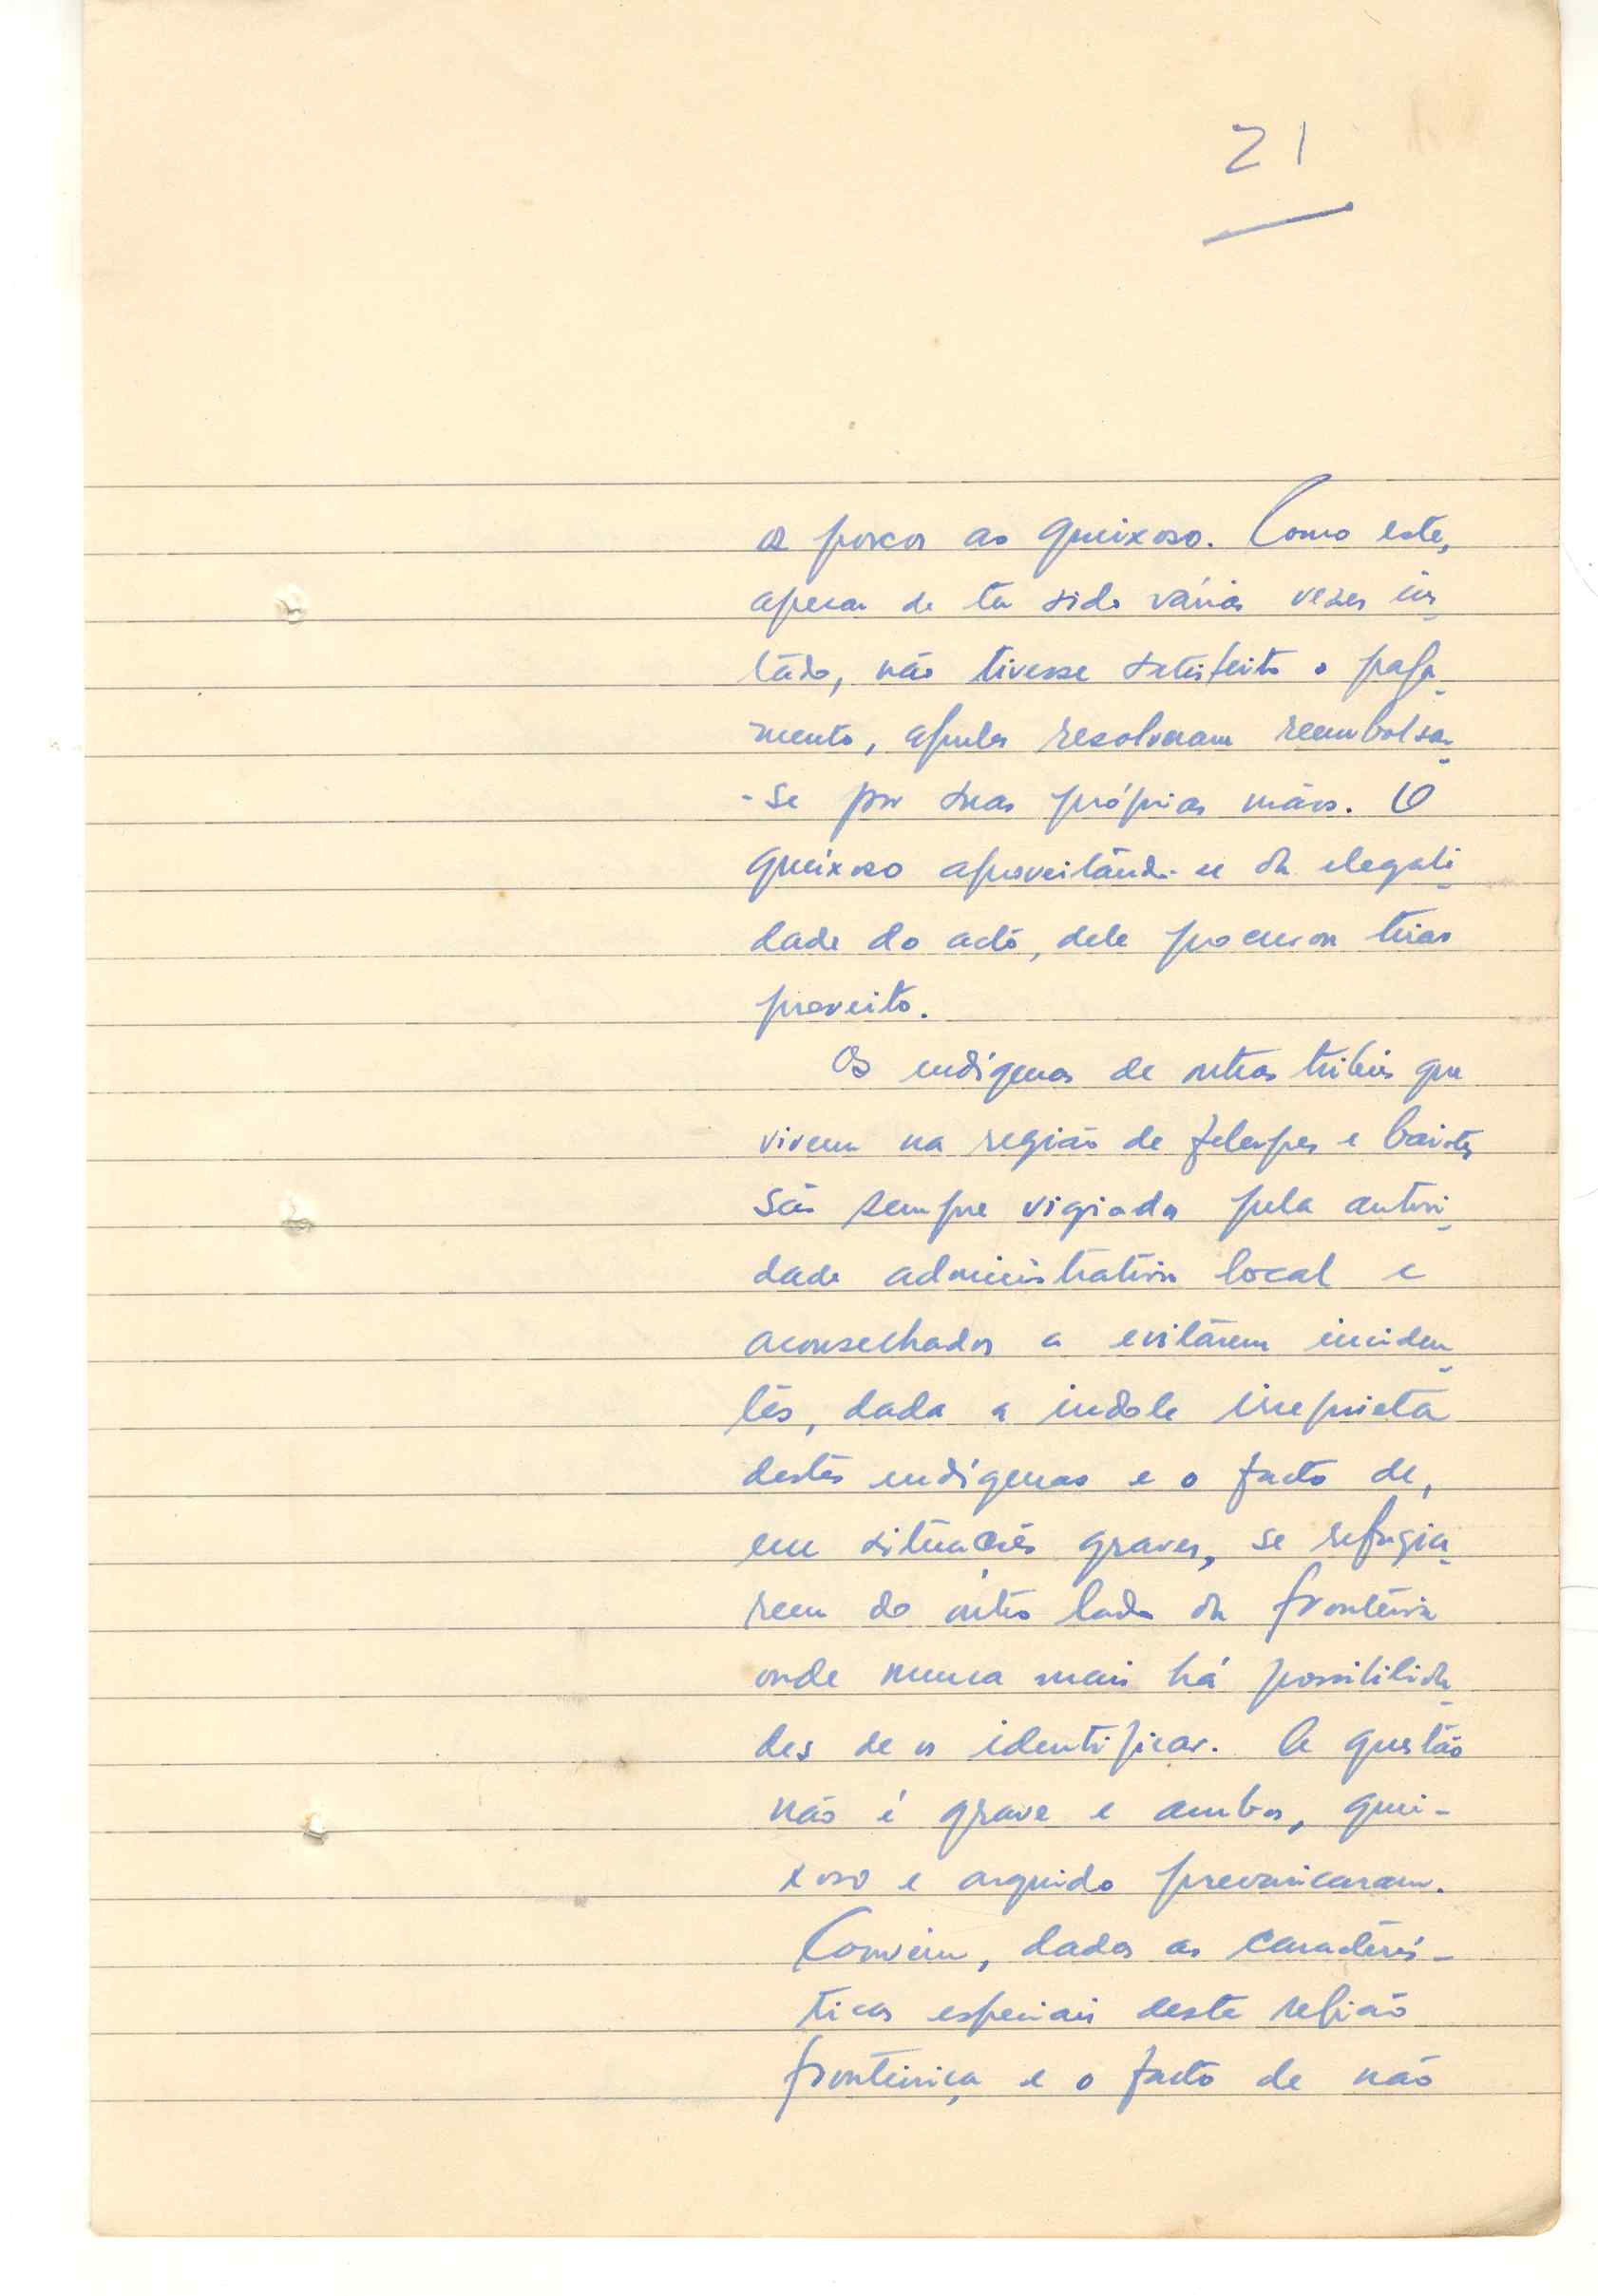 21
os porcos ao queixoso. Como este,
apesar de ter sido várias vezes ins-
tado, não tivesse satisfeito o paga-
mento, aqueles resolveram reembolsar-
-se por suas próprias mãos. O
queixoso aproveitando-se da elegali-
dade do acto, dele procurou tirar
proveito.
Os indígenas de outras tribus que
vivem na região de felupes e baiotes
são sempre vigiados pela autori-
dade administrativa local e
aconselhados a evitarem inciden-
tes, dada a indole irrequieta
destes indígenas e o facto de,
em situações graves, se refugia-
rem do outro lado da fronteira
onde nunca mais há possibilida-
des de os identificar. A questão
não é grave e ambos, quei-
xoso e arguido prevaricaram.
Convém, dadas as caracterís-
ticas especiais desta região
fronteiriça e o facto de não